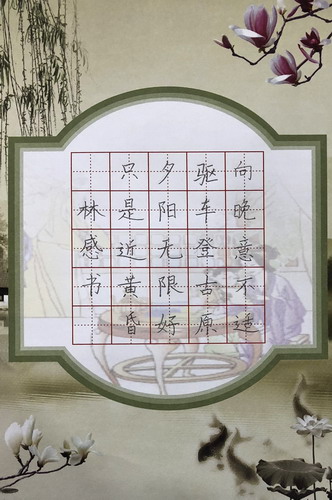 向晚意不适
驱车登古原
夕阳无限好
只是近黄昏
林感书